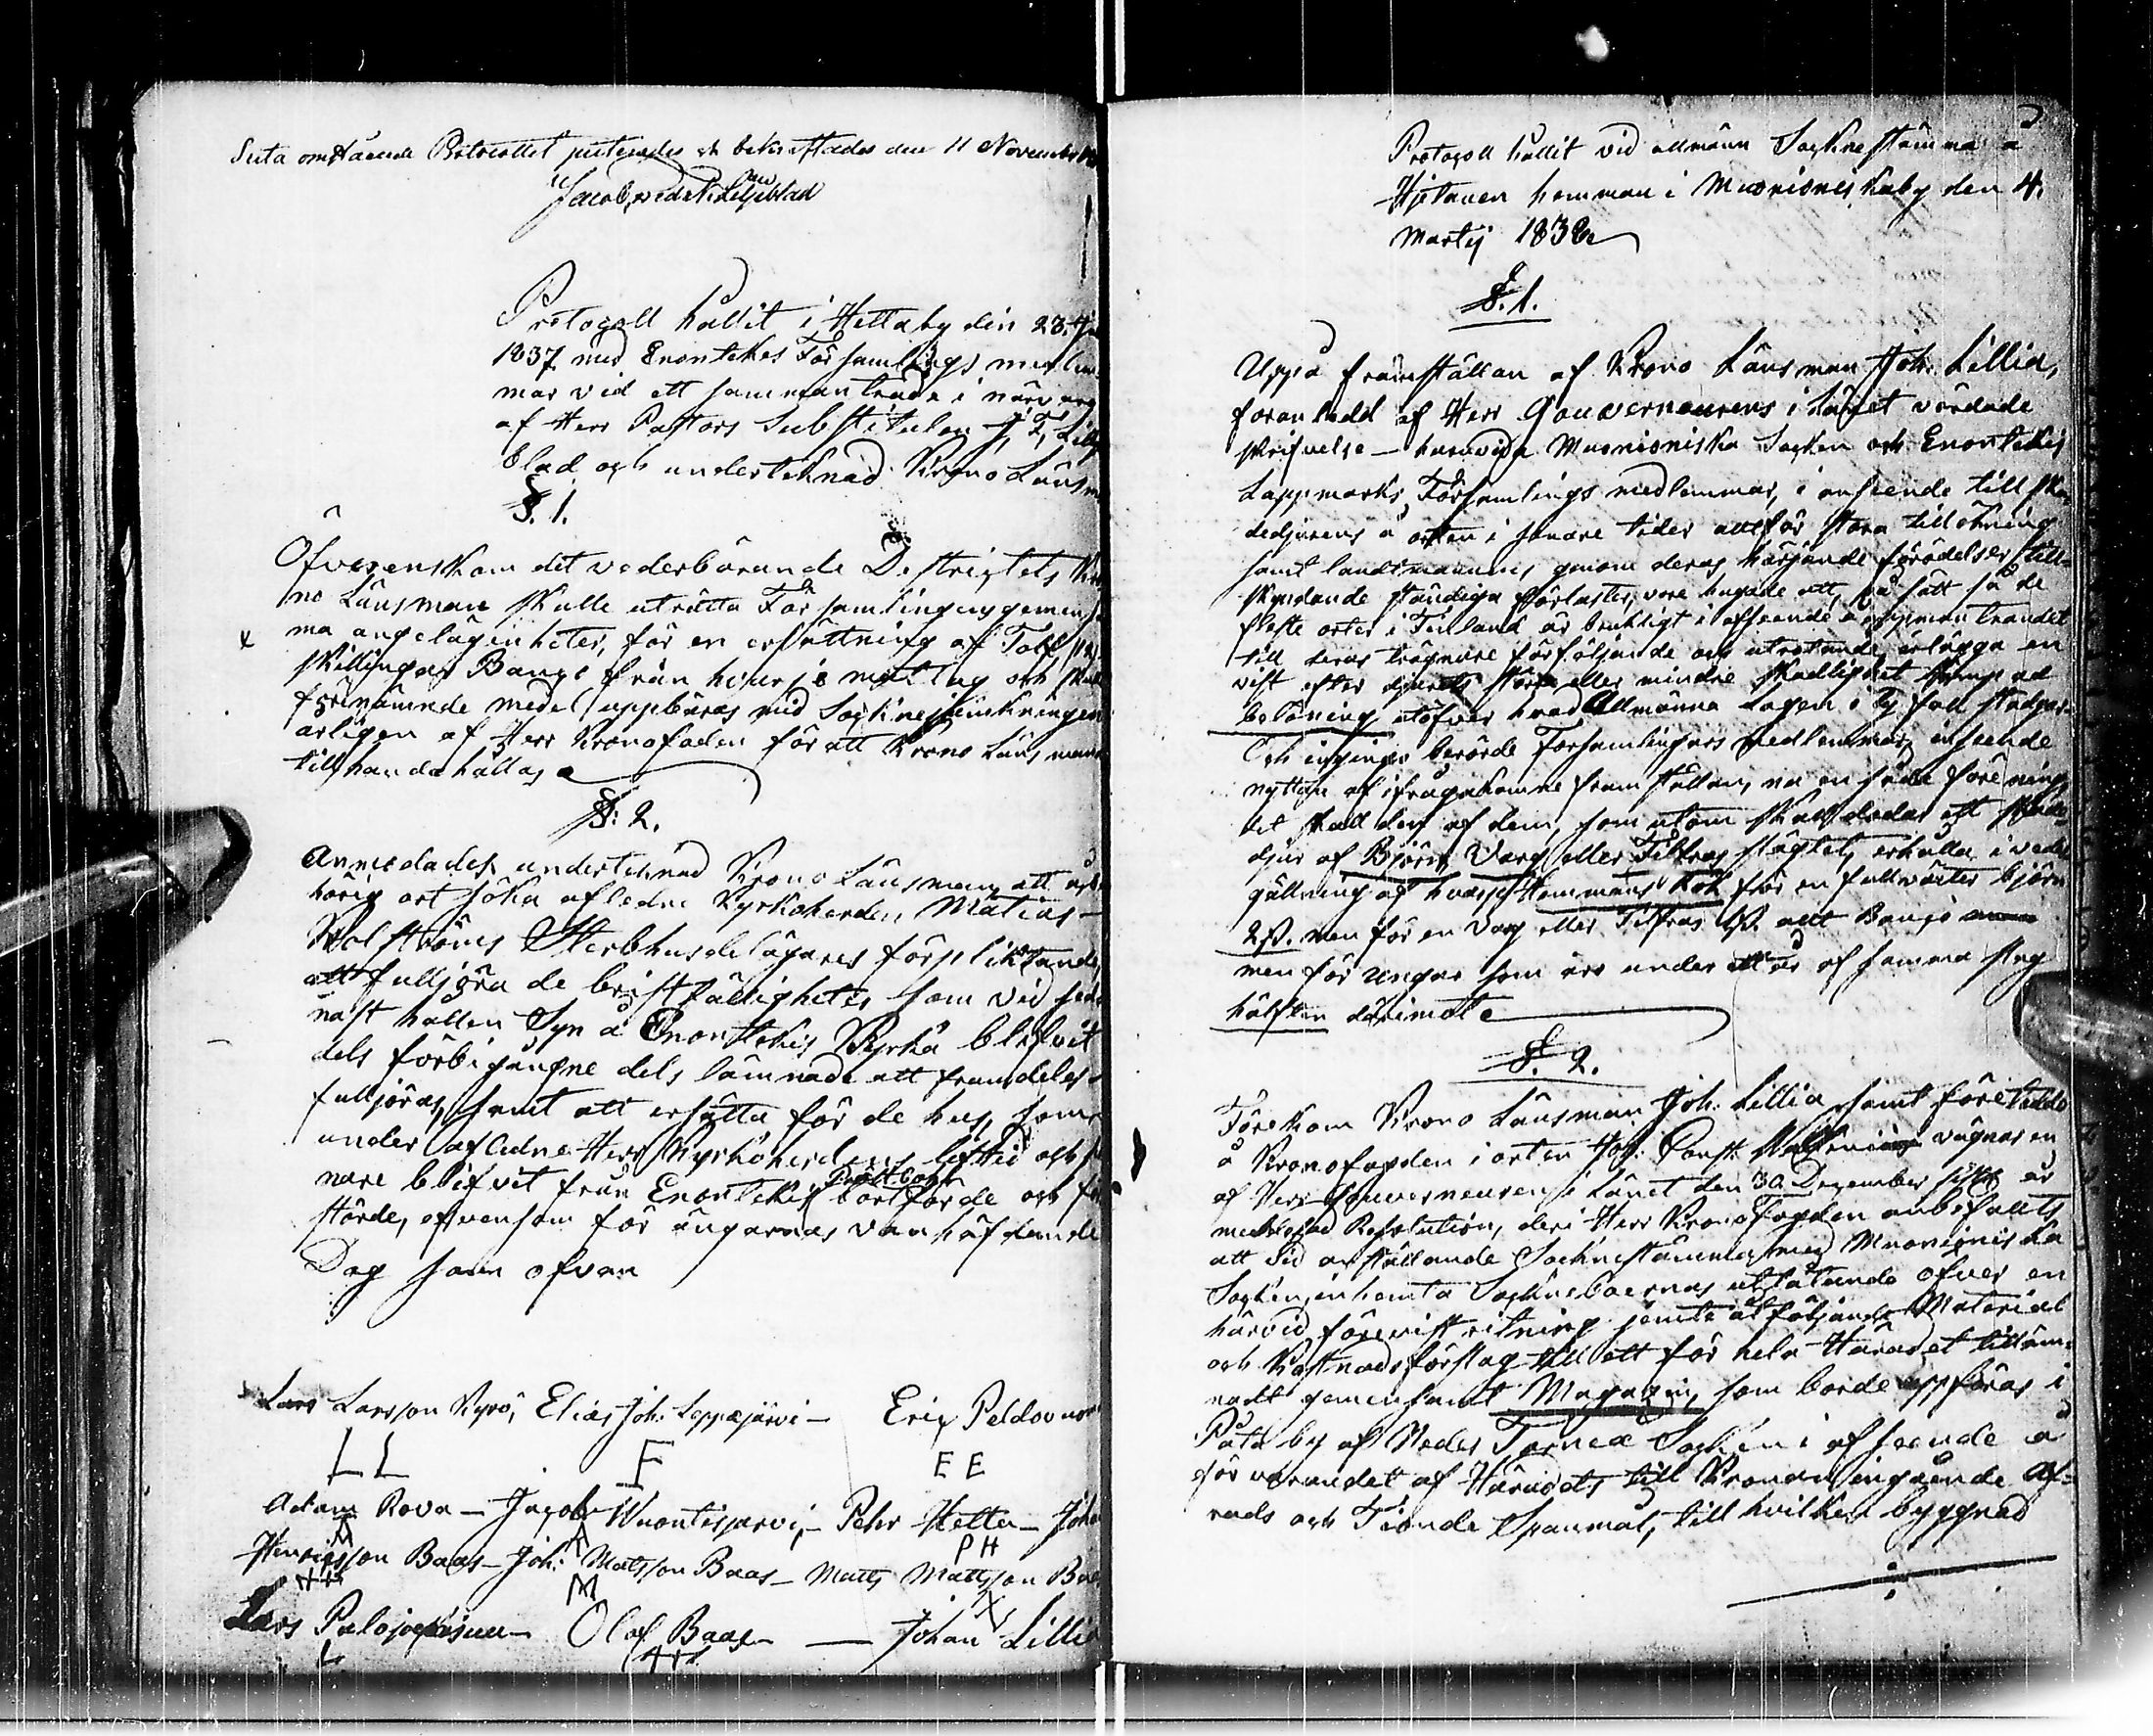 Suta omstående Protocollet justerades och bekräftades den 11 November
Jacob Fredrik Liljeblad
Protogoll hållit i Hetta by den 23. Ja
1837 med Enontekes Församlings medlem
mar vid ett sammanträde i närvaro
af Herr Pastors Substituten J. F. Lillje
blad och underteknad Krono Länsm
§. 1.
Öfverenskom det vederbörande Distrigtets Kro
no Länsman skulle uträtta Församlingens gemensa
ma angelägenheter, för en ersättning af Tolf (12)
skillingar Banco från hvarje matlag och skulle
förenämnde medel uppbäras vid Sockneskrifningen
årligen af Herr Kronofogden för att Krono Länsman
tillhandahållas
§: 2.
Anmodades underteknad Krono Länsman att veder
hörig ort söka afledne Kyrkoherden Matias
Wolströms Sterbhusdelägares förpliktande
att fullgöra de bristfälligheter som vid sed
nast hållen Syn å Enontekis Kyrka blifvit
dels förbigångne dels lämnade att framdeles
fullgöras, samt att ersätta för de hus, som
under aflidne Herr Kyrkoherdens lifstid och se
nare blifvit från Enontekis Prästbohl bortförde och för
störde, äfvensom för ängarnas vanhäfdande
Dag som ofvan
Lars Larsson Kyrö, Elias Joh. Leppejärvi – Eric Peldovuo
LL F EE
Adam Rova – Jacob Wuontisjärvi, – Peter Hetta – Joha
A PH
Henricsson Baas – Joh: Matsson Baas – Matts Mattsson Baa
M X
Lars Palojoensuu – Olof Baas – Johan Lillia
L
Protogoll hållit vid allmän Sockne stämma å
Hjetanen hemman i Muonionis kaby den 4.
Martij 1838
§. 1.
Uppå framställan af Krono Länsman Joh. Lillia,
föranledd af Herr Gouverneurens i Länet vördade
skrifvelse – huruvida Muonioniska Socken och Enontekis
Lappmarks Församlings medlemmar, i anseende till ska
dedjurens å orten i senare tider alltför stora tillökning
samt landtmannens genom deras härjande förödelser till-
skyndande ständiga förluster, vore hugade att, på sätt på de
fleste orter i Finland är brukligt i afseende å uppmuntrandet
till deras trägnare förföljande och utrotande, erlägga en
vist efter djurets större eller mindre skadlighet lämpad
belöning utöfver hvad Allmänna Lagen i ty fall stadgar.
Och ingingo berörde Församlingars medlemmar, inseende
nyttan af ifrågakomne framställan, na en sådan förening
det skall den af dem, som utom skall dödar ett skade-
djur af Björn, Varg eller Filfras slägtet, erhålla i veder
gällning af hvarje Hemmans Rök för en fullväxter björn
2 sk. men för en Varg eller Filfras 1 sk. allt Banco
men för ungar som äro under ett år af samma slag
hälften däremot
§. 2.
Förekom Krono Länsman Joh. Lillia samt företeddo
å Kronofogden i orten Joh. vägnar en
af Herr Gouverneuren i Länet den 30 Dezember sistl. år
meddelad Resolution, deri Herr Kronofogden anbefallts
att vid anställande Socknestämma med Muonioniska
Socken, inhemta Socknebornas utlåtande öfver en
härvid förevist ritning jemte åtföljande Material
och Kostnadsförslag till ett för hela Häradet tilläm
nadt gemensamt Magazin, som borde uppföras i
by af Neder Torneå Socken i afseende å
förvarandet af Häradets till Kronan ingående Af-
rads och Tionde Spanmål, till hvilken byggnad